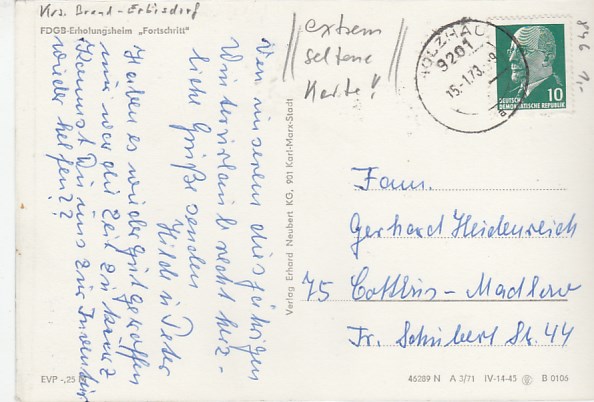 Krs. Brand-Erbisdorf
FDGB-Erholungsheim „Fortschritt"
Von unserem diesjährigen
Winterurlaub recht herz-
liche Grüße senden
Hilde u. Peter
Haben es wieder gut getroffen
nur war die Zeit zu kurz
Kannst Du uns zur Inventur
wieder helfen??
EVP -,25
Verlag Erhard Neubert KG, 901 Karl-Marx-Stadt
extrem
seltene
Karte!
HOLZHAU
9201
15.-1.73.
10
DEUTSCHE
DEMOKRATISCHE REPUBLIK
846
Fam.
Gerhard Heidenreich
75 Cottbus-Madlow
Fr. Schubert Str. 44
46289 N A 3/71 IV-14-45 B 0106